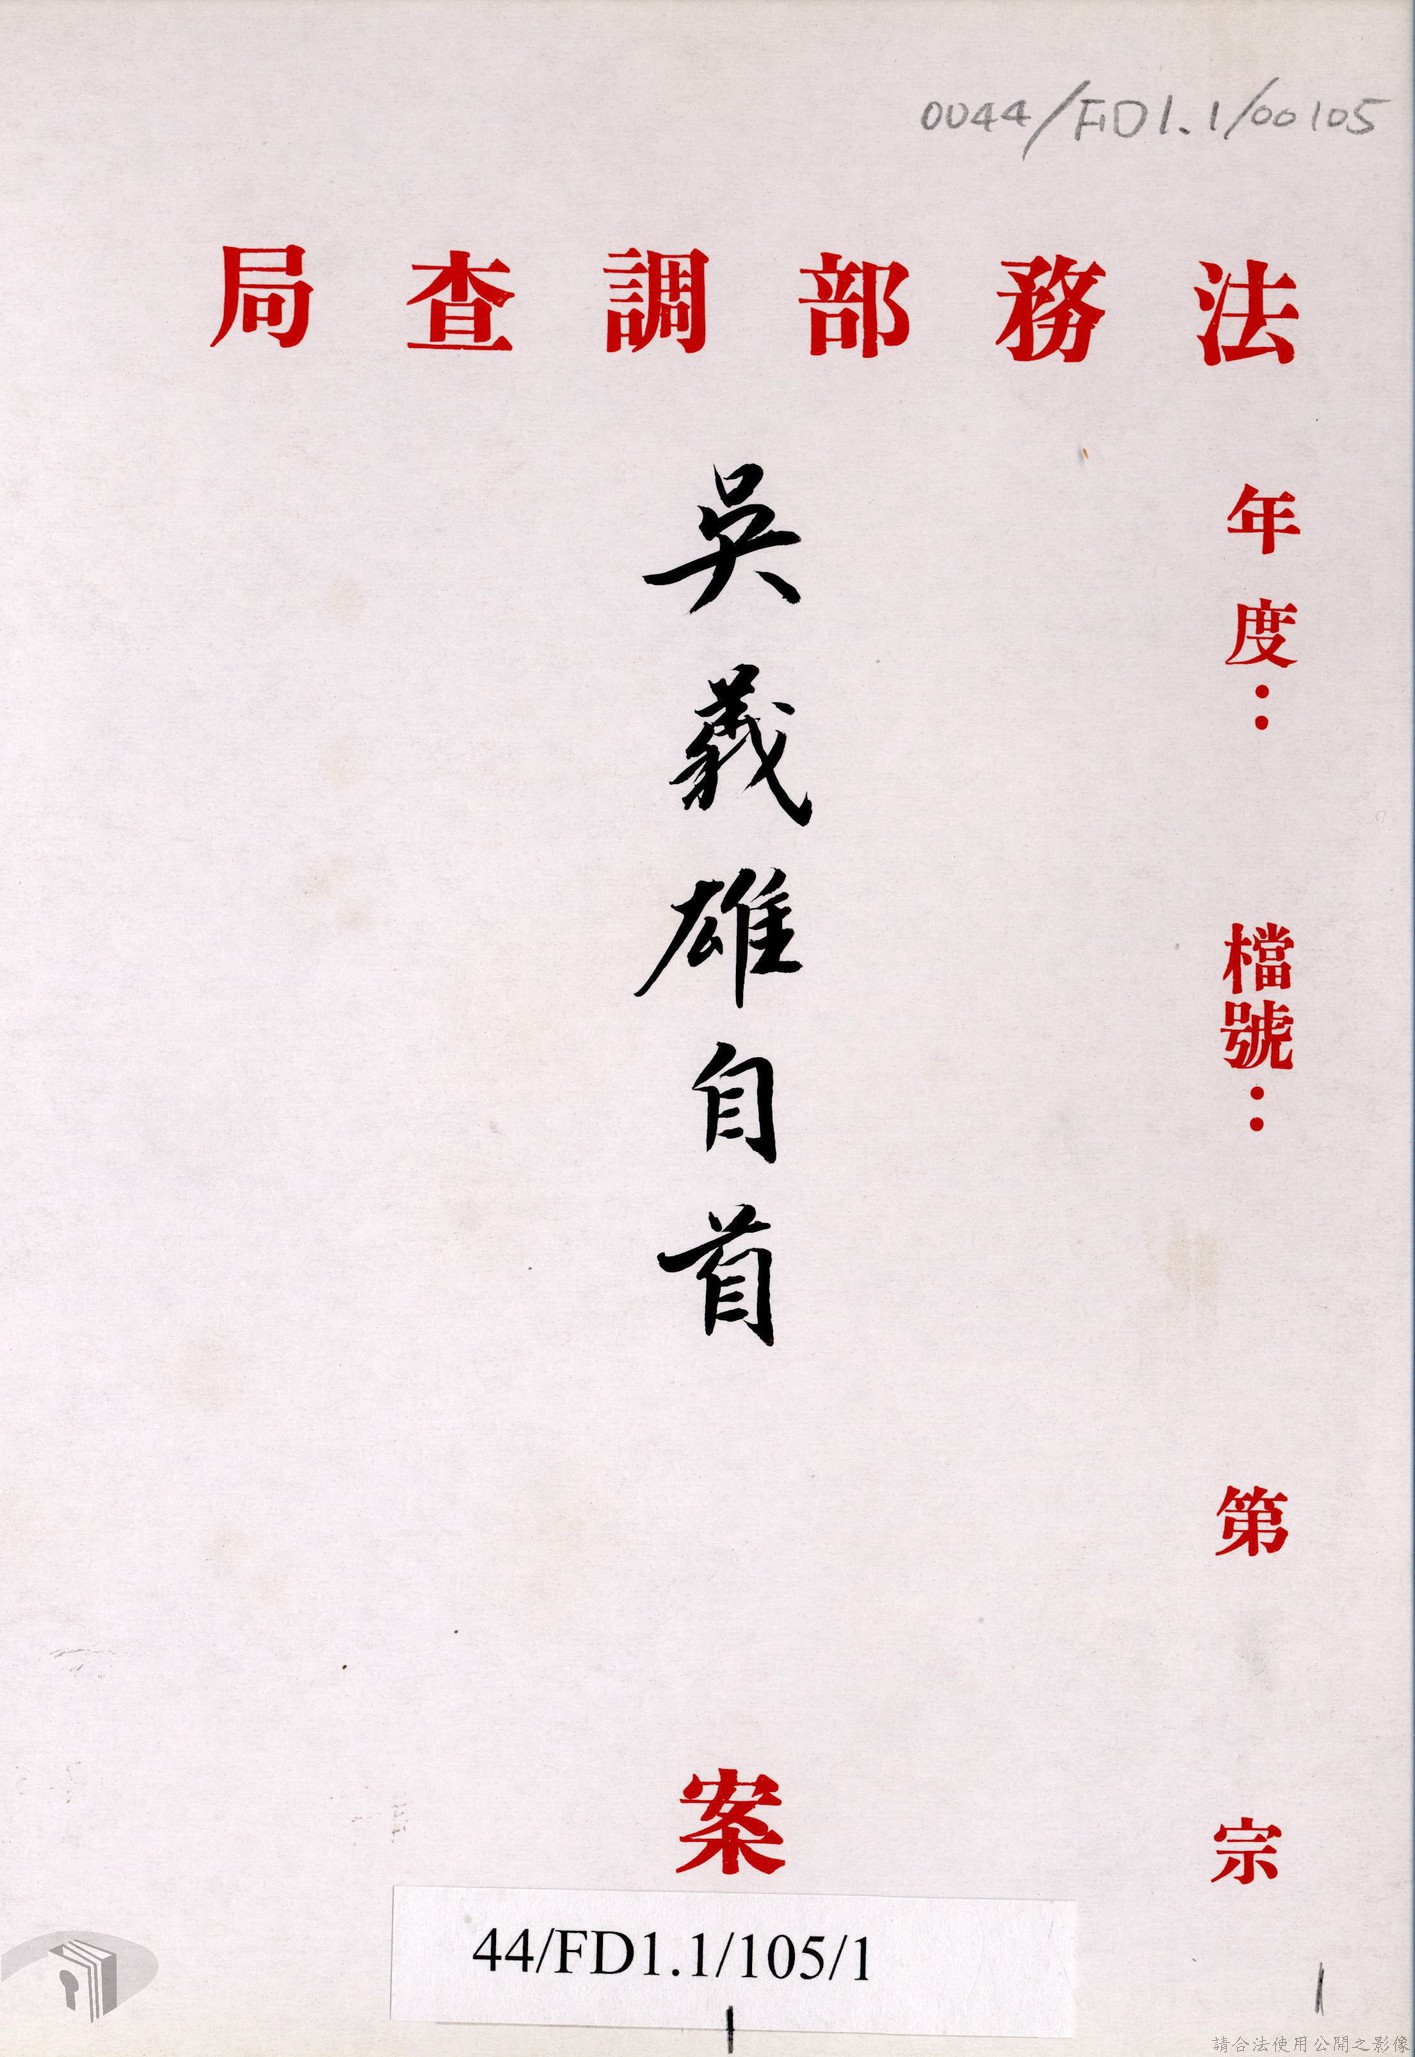 0044/FD1.1/00105
法務部調查局
年度：
檔號：
第
宗
吳義雄自首
案
44/FD1.1/105/1
請合法使用公開之影像